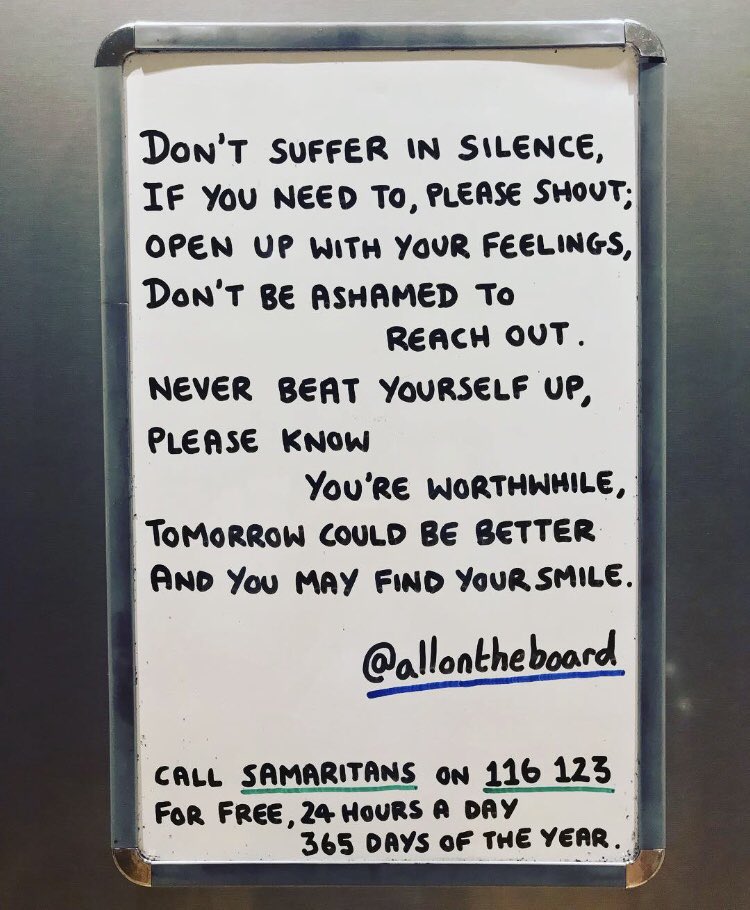 DON'T SUFFER IN SILENCE,
IF YOU NEED TO, PLEASE SHOUT;
OPEN UP WITH YOUR FEELINGS,
DON'T BE ASHAMED TO
REACH OUT.
NEVER BEAT YOURSELF UP,
PLEASE KNOW
YOU'RE WORTHWHILE,
TOMORROW COULD BE BETTER
AND YOU MAY FIND YOUR SMILE.
@allontheboard
CALL SAMARITANS ON 116 123
FOR FREE, 24 HOURS A DAY
365 DAYS OF THE YEAR.